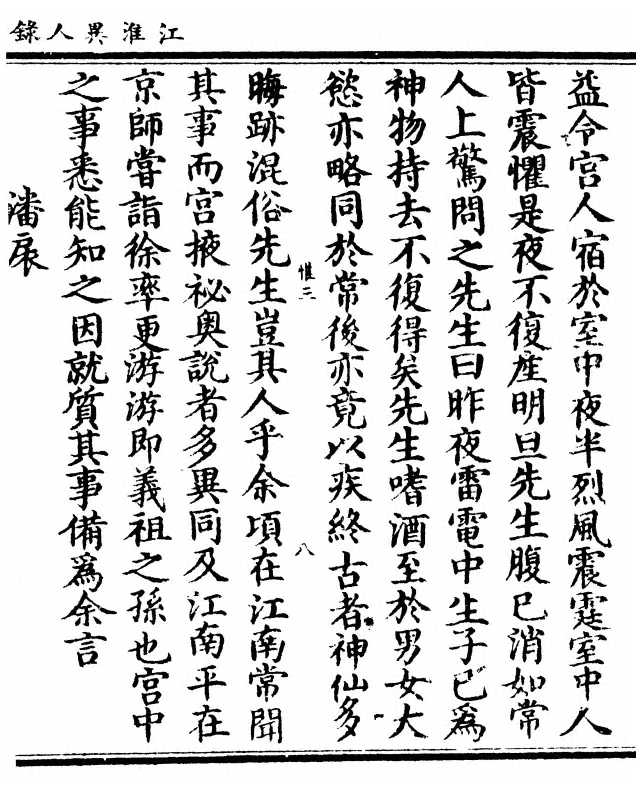 江淮異人錄
益令宫人宿於室中夜半烈風震霆室中人
皆震懼是夜不復産明旦先生腹已消如常
人上驚問之先生曰昨夜雷電中生子已爲
神物持去不復得矣先生嗜酒至於男女大
慾亦略同於常後亦竟以疾終古者神仙多
惟三
八
晦跡混俗先生豈其人乎余頃在江南常聞
其事而宫掖祕奥說者多異同及江南平在
京師嘗詣徐率更游游即義祖之孫也宫中
之事悉能知之因就質其事備爲余言
潘扆